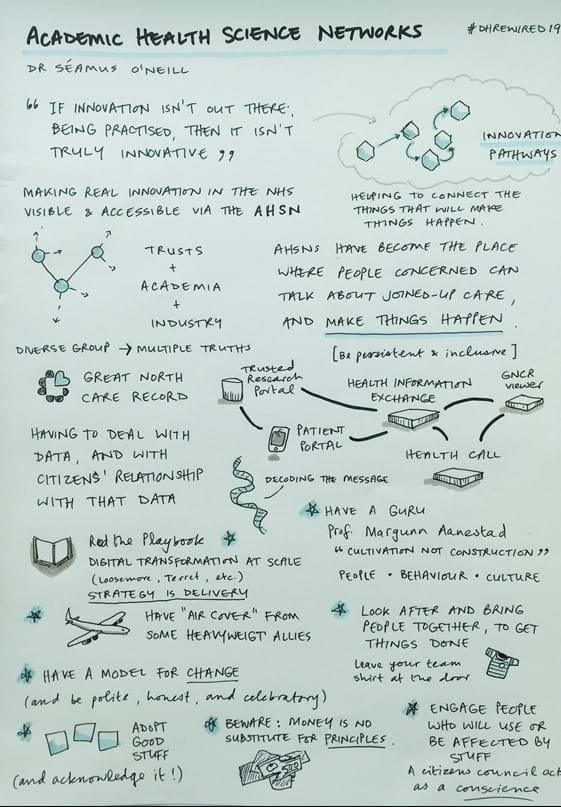 ACADEMIC HEALTH SCIENCE NETWORKS
#DHREWIRED19
DR SÉAMUS O'NEILL
“ IF INNOVATION ISN'T OUT THERE,
BEING PRACTISED, THEN IT ISN'T
TRULY INNOVATIVE ”
INNOVATION
PATHWAYS
MAKING REAL INNOVATION IN THE NHS
VISIBLE & ACCESSIBLE VIA THE AHSN
HELPING TO CONNECT THE
THINGS THAT WILL MAKE
THINGS HAPPEN.
TRUSTS
+
ACADEMIA
+
INDUSTRY
AHSNS HAVE BECOME THE PLACE
WHERE PEOPLE CONCERNED CAN
TALK ABOUT JOINED-UP CARE,
AND MAKE THINGS HAPPEN.
DIVERSE GROUP → MULTIPLE TRUTHS
[Be persistent & inclusive]
GREAT NORTH
CARE RECORD
Trusted
Research
Portal
HEALTH INFORMATION
EXCHANGE
GNCR
viewer
PATIENT
PORTAL
HEALTH CALL
HAVING TO DEAL WITH
DATA, AND WITH
CITIZENS' RELATIONSHIP
WITH THAT DATA
DECODING THE MESSAGE
HAVE A GURU
Prof. Margunn Aanestad
“ CULTIVATION NOT CONSTRUCTION ”
PEOPLE • BEHAVIOUR • CULTURE
Read the Playbook
DIGITAL TRANSFORMATION AT SCALE
(Loosemore, Terret, etc.)
STRATEGY IS DELIVERY
HAVE "AIR COVER" FROM
SOME HEAVYWEIGT ALLIES
LOOK AFTER AND BRING
PEOPLE TOGETHER, TO GET
THINGS DONE
Leave your team
shirt at the door
HAVE A MODEL FOR CHANGE
(and be polite, honest, and celebratory)
ADOPT
GOOD
STUFF
(and acknowledge it!)
BEWARE: MONEY IS NO
SUBSTITUTE FOR PRINCIPLES.
ENGAGE PEOPLE
WHO WILL USE OR
BE AFFECTED BY
STUFF
A citizens council act
as a conscience